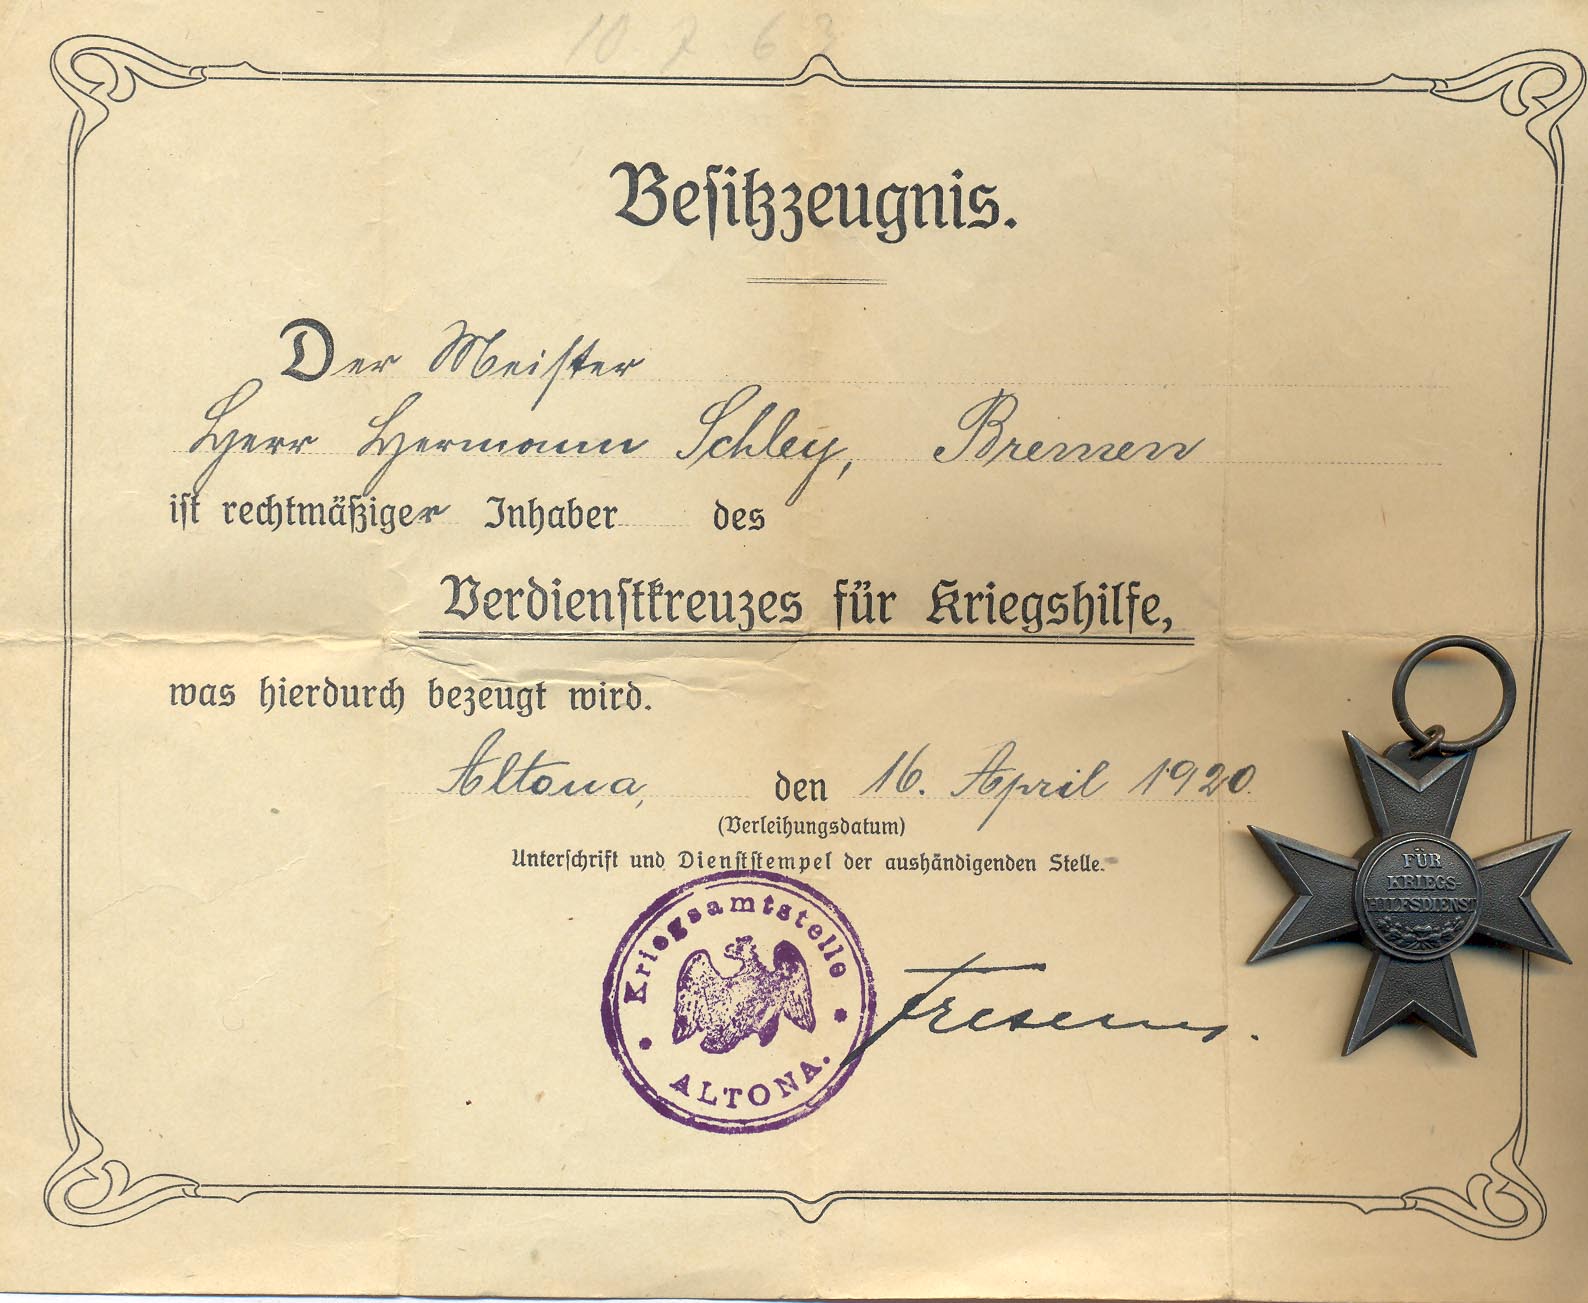 10 7 63
Besitzzeugnis.
Der Meister
Herr Hermann Schley, Bremen
ist rechtmäßiger Inhaber des
Verdienstkreuzes für Kriegshilfe,
was hierdurch bezeugt wird.
Altona, den 16. April 1920.
(Verleihungsdatum)
Unterschrift und Dienststempel der aushändigenden Stelle.
Kriegsamtstelle
ALTONA.
FÜR
KRIEGS-
HILFSDIENST